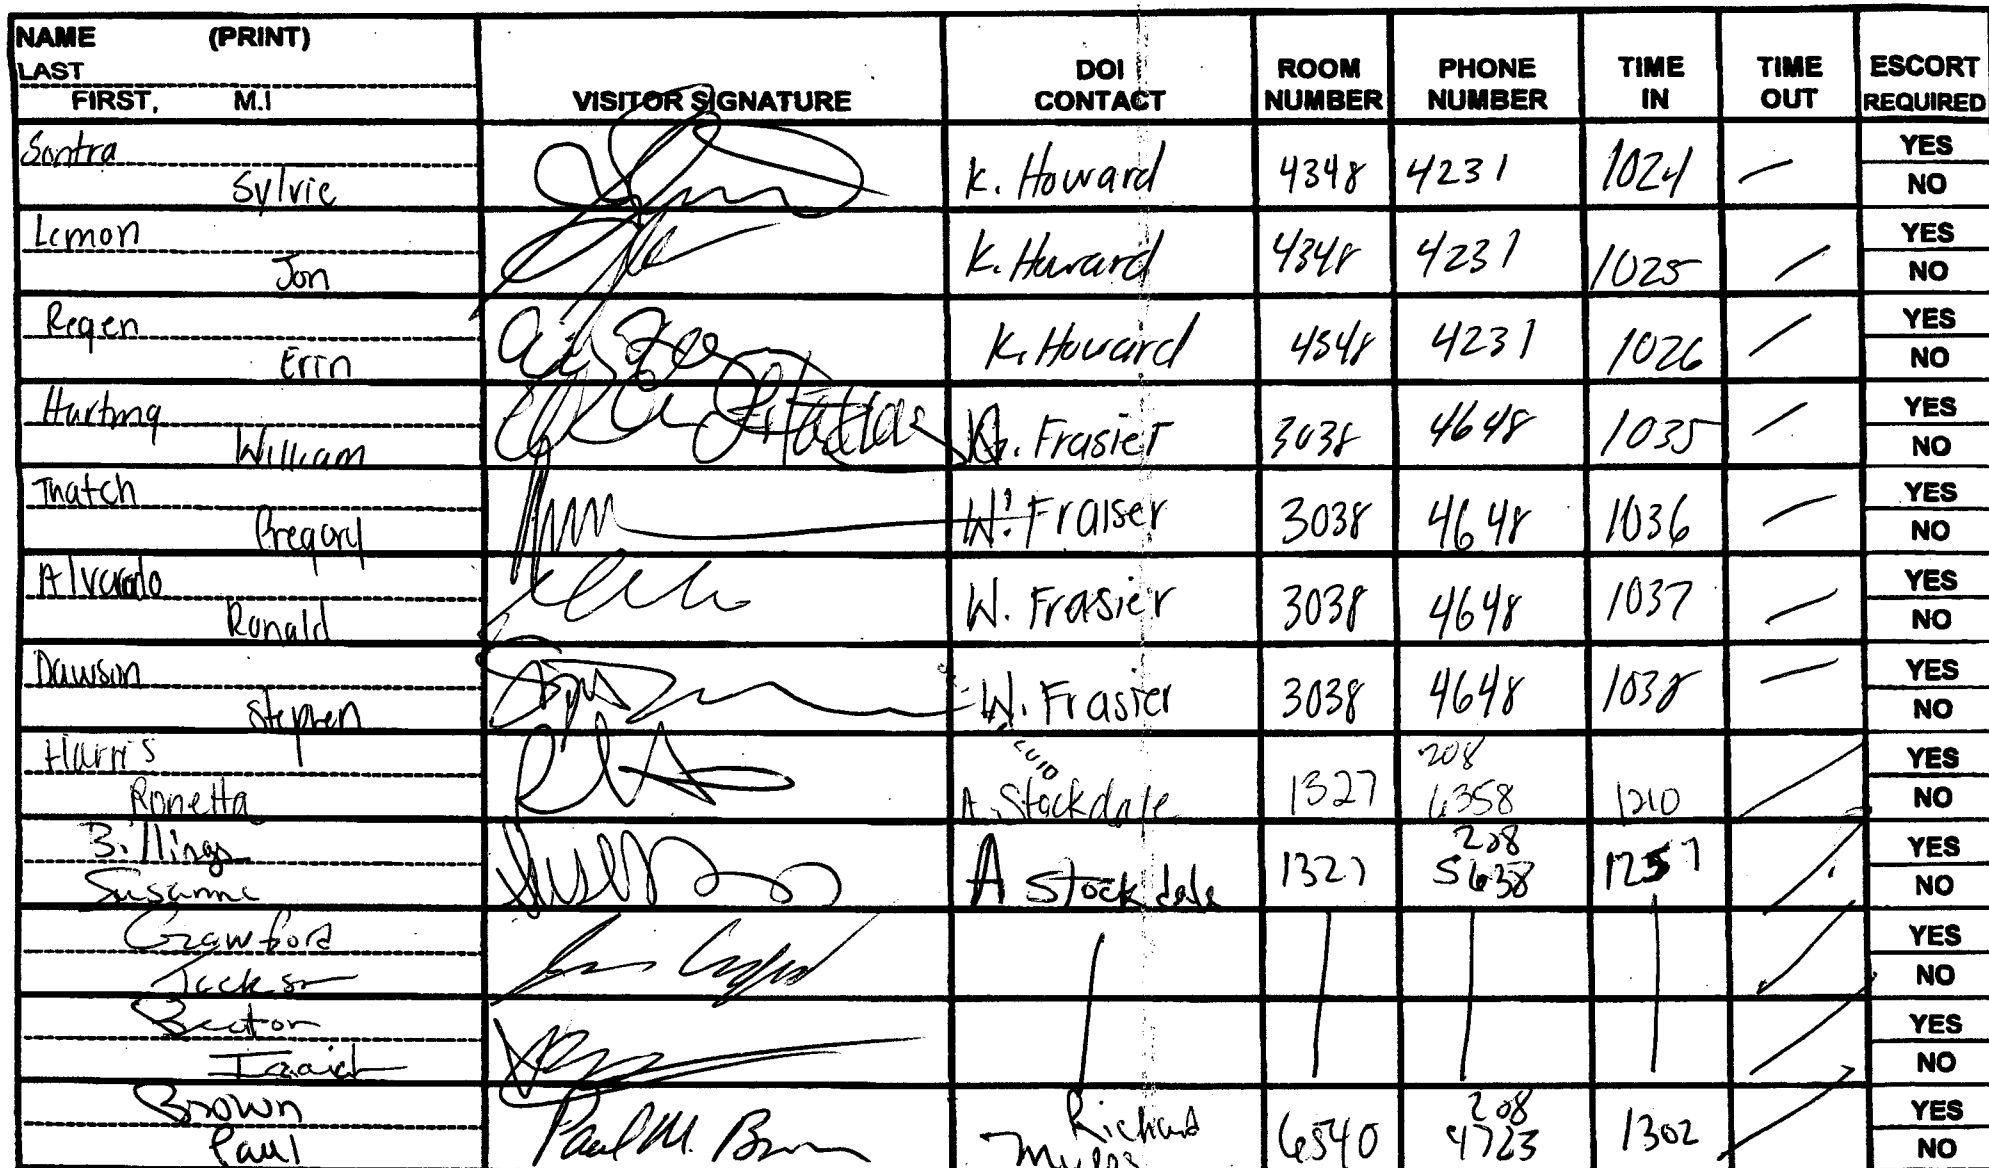 NAME (PRINT)
LAST
FIRST, M.I
VISITOR SIGNATURE
DOI
CONTACT
ROOM
NUMBER
PHONE
NUMBER
TIME
IN
TIME
OUT
ESCORT
REQUIRED
Sontra
Sylvie
K. Howard 4348 4231 1024
YES
NO
Lemon
Jon
K. Howard 4348 4231 1025
YES
NO
Regen
Erin
K. Howard 4348 4231 1026
YES
NO
William
Frasier 3038 4648 1035
YES
NO
Thatch
Gregory
W. Fraiser 3038 4648 1036
YES
NO
Alvarado
Ronald
W. Frasier 3038 4648 1037
YES
NO
Dawson
Stephen
W. Frasier 3038 4648 1038
YES
NO
Harris
Ronetta
A. Stockdale 1327 208 6358 1210
YES
NO
Billings
Susanne
A Stockdale 1327 208 5638 1257
YES
NO
Crawford
Jackson
YES
NO
YES
NO
Brown
Paul
Paul M. Brown
Richard
6540 208 4723 1302
YES
NO